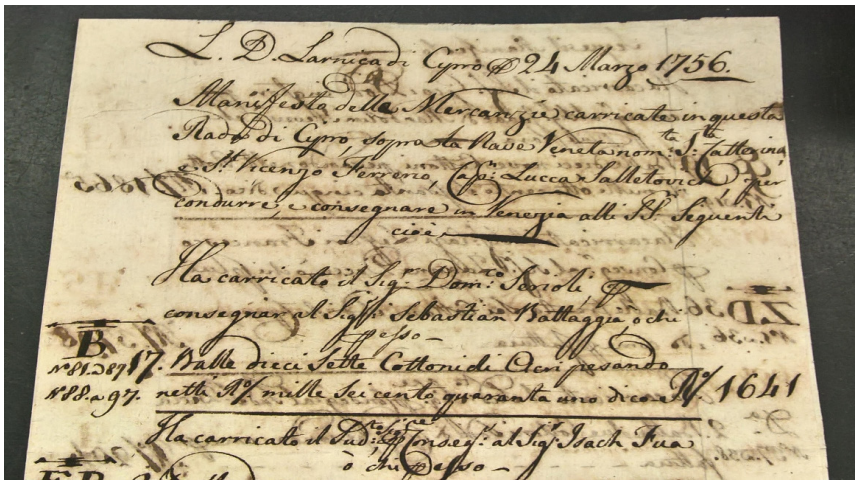 L. D. Larnica di Cipro P 24 Marzo 1756.
Manifesto delle Mercanzie carricate in questa
Rada di Cipro sopra la Nave Veneta nom:ta S:ta Catterina,
e S:n Vicenzo Ferreno, Cap:n Lucca Salletovich, per
condurre, e consegnare in Venezia alli SS:ri Seguenti
cioè
Ha carricato il Sig:r Dom:co Serioli, P
consegnar al Sig:r Sebastian Battaggia, o chi
P esso –
B
No 81. a 87 17. Balle dieci sette Cottoni di Acri pesando
No 88. a 97. netti Ro/ mille sei cento quaranta uno dico Ro/ 1641
Ha carricato il Sud:to P conseg:r al Sig:r Isach Fua
ò chi P esso –